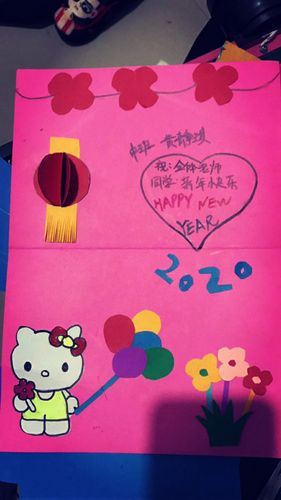 中班
祝:全体老师
同学 新年快乐
HAPPY NEW
YEAR
2020